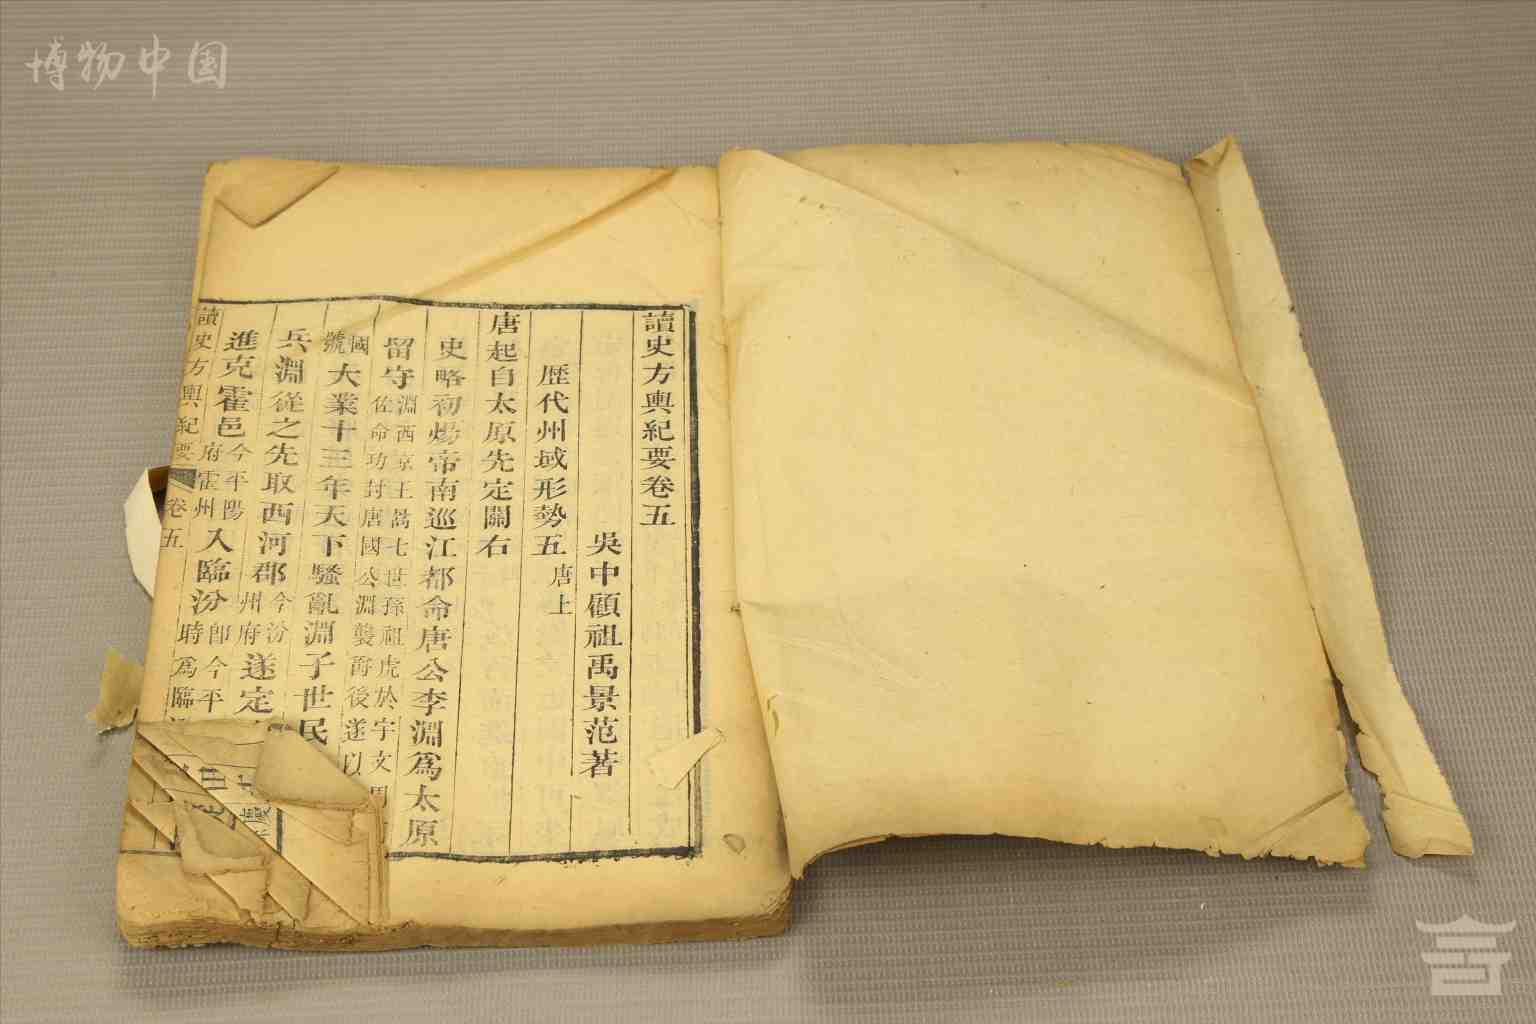 博物中国
讀史方輿紀要卷五
吳中顧祖禹景范著
歷代州域形勢五唐上
唐起自太原先定關右
史略初煬帝南巡江都命唐公李淵爲太原
留守淵西京王暠七世孫祖虎於宇文周
佐命功封唐國公淵襲爵後遂以
國號大業十三年天下騷亂淵子世民
兵淵從之先取西河郡今汾州府遂定
進克霍邑今平陽府霍州入臨汾卽今平
時爲臨
讀史方輿紀要 卷五